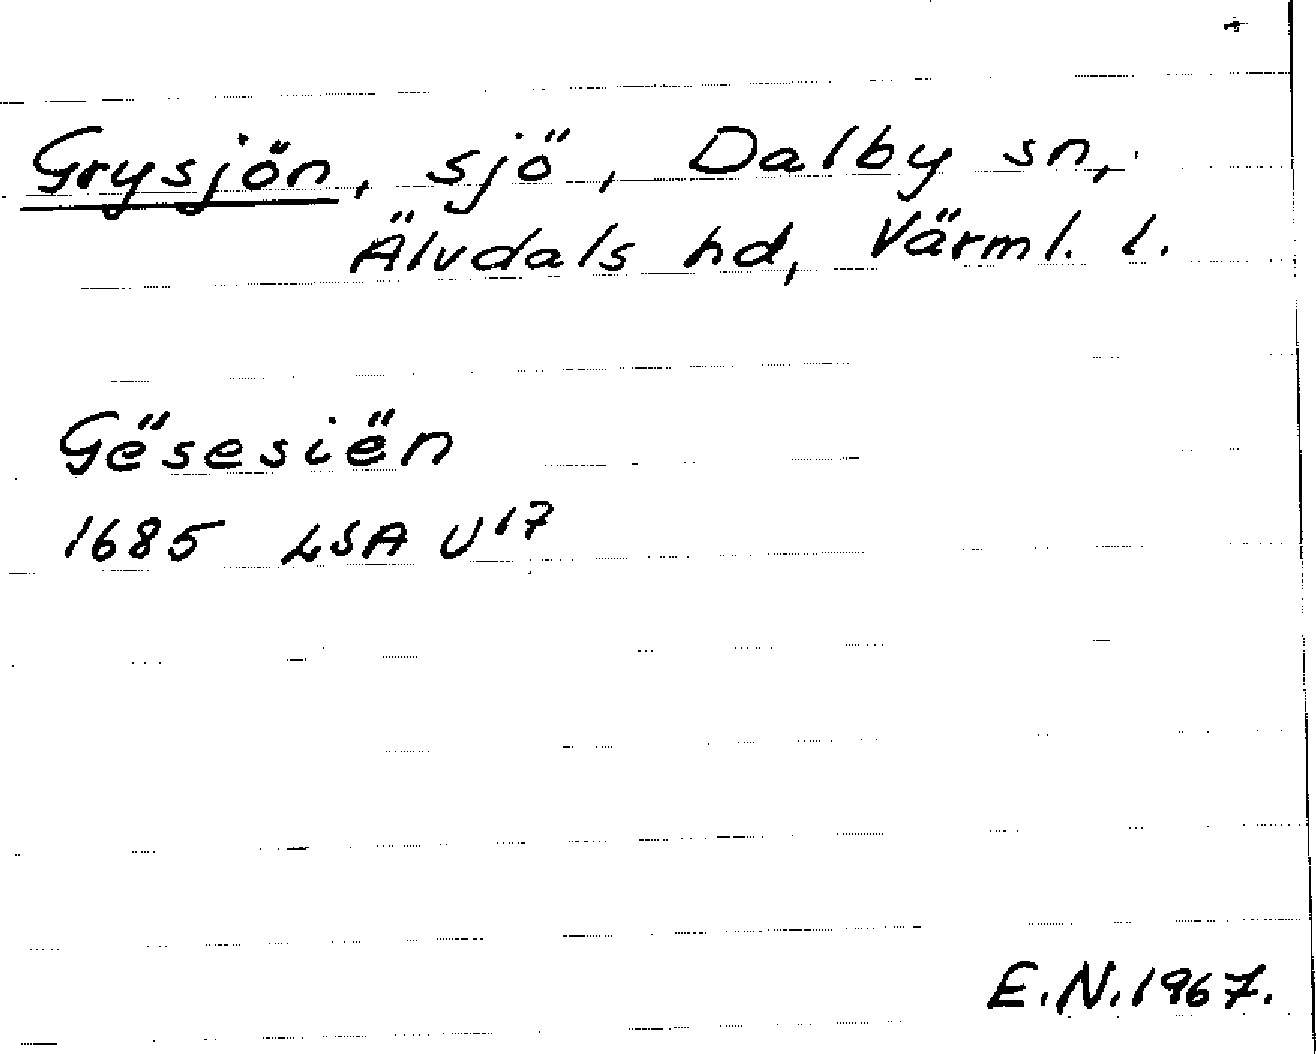 Grysjön, sjö, Dalby sn,
Älvdals hd, Värml. l.
Gësesiën
1685 LSA U17
E.N. 1967.